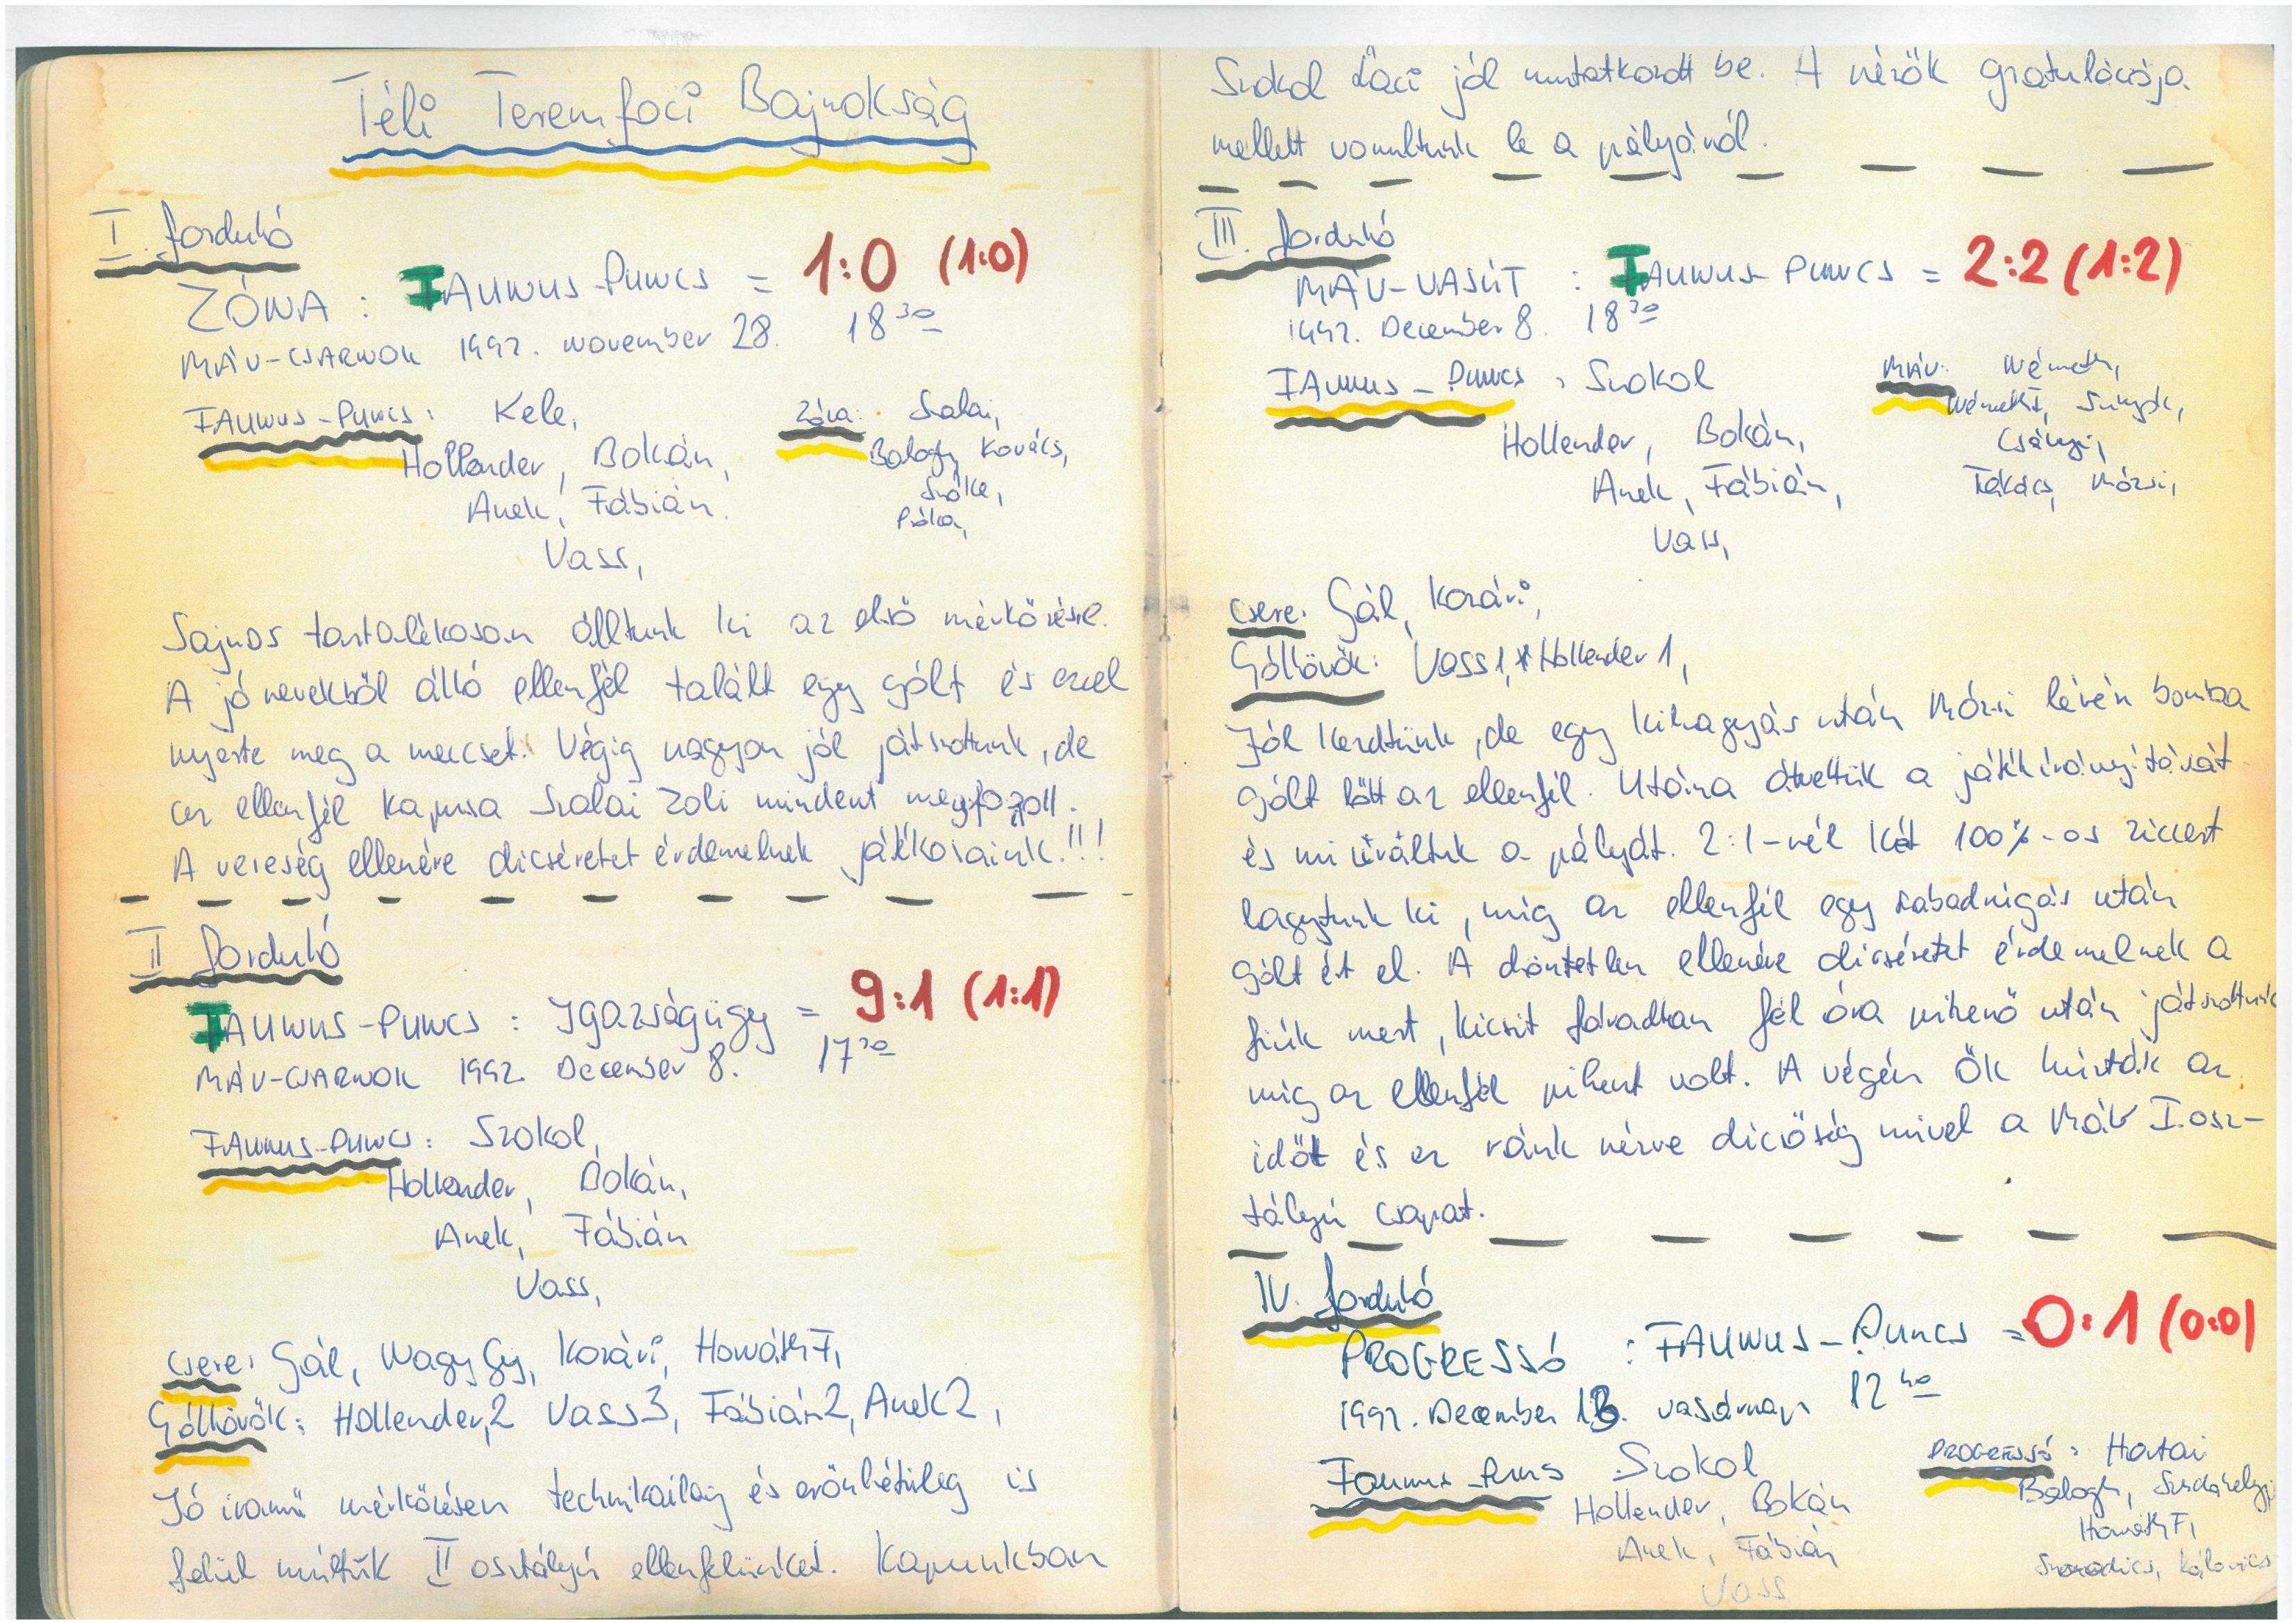 Téli Teremfoci Bajnokság
I. forduló
ZÓNA : FAUNUS-PUNCS = 1:0 (1:0)
MÁV-CSARNOK 1992. november 28. 18 30
FAUNUS-PUNCS: Kele,
Hollender, Bokán,
Anek, Fábián.
Vass,
Zóna: Szalai,
Balogh, Kovács,
Szőke,
Póka,
Sajnos tartalékosan álltunk ki az első mérkőzésre.
A jó nevekből álló ellenfél talált egy gólt és ezzel
nyerte meg a meccset. Végig nagyon jól játszottunk, de
az ellenfél kapusa Szalai Zoli mindent megfogott.
A vereség ellenére dicséretet érdemelnek játékosaink.!!!
II forduló
FAUNUS-PUNCS : Igazságügy = 9:1 (1:1)
MÁV-CSARNOK 1992. December 8. 17 30
FAUNUS-PUNCS: Szokol,
Hollender, Bokán,
Anek, Fábián
Vass,
Csere: Gál, Nagy Gy, Kozári, Horváth F,
Góllövők: Hollender,2 Vass3, Fábián2, Anek2,
Jó iramú mérkőzésen technikailag és erőnlétileg is
felül múltuk II osztályú ellenfelünket. Kapunkban
Szokol Laci jól mutatkozott be. A nézők gratulációja
mellett vonultunk le a pályáról.
III. forduló
MÁV-VASÚT : FAUNUS-PUNCS = 2:2 (1:2)
1992. December 8. 18 30
FAUNUS-PUNCS: Szokol
Hollender, Bokán,
Anek, Fábián,
Vass,
MÁV: Németh,
NémethI,
Csányi,
Takács, Mózsi,
Csere: Gál, Kozári,
Góllövők: Vass1, Hollender1,
Jól kezdtünk, de egy kihagyás után Mózsi révén bomba
gólt lőtt az ellenfél. Utána átvettük a játék irányítását
és mi uráltuk a pályát. 2:1-nél két 100%-os ziccert
hagytunk ki, míg az ellenfél egy szabadrúgás után
gólt ért el. A döntetlen ellenére dicséretet érdemelnek a
fiúk mert, kicsit fáradtan fél óra pihenő után játszottunk
míg az ellenfél pihent volt. A végén ők húzták az
időt és ez ránk nézve dicsőség mivel a MÁV I.osz-
tályú csapat.
IV. forduló
PROGRESSÓ : FAUNUS-PUNCS = 0:1 (0:0)
1992. December 13. vasárnap 12 40
Faunus-Puncs Szokol
Hollender, Bokán
Anek, Fábián
Vass
PROGRESSÓ: Hartai
Balogh,
Horváth F,